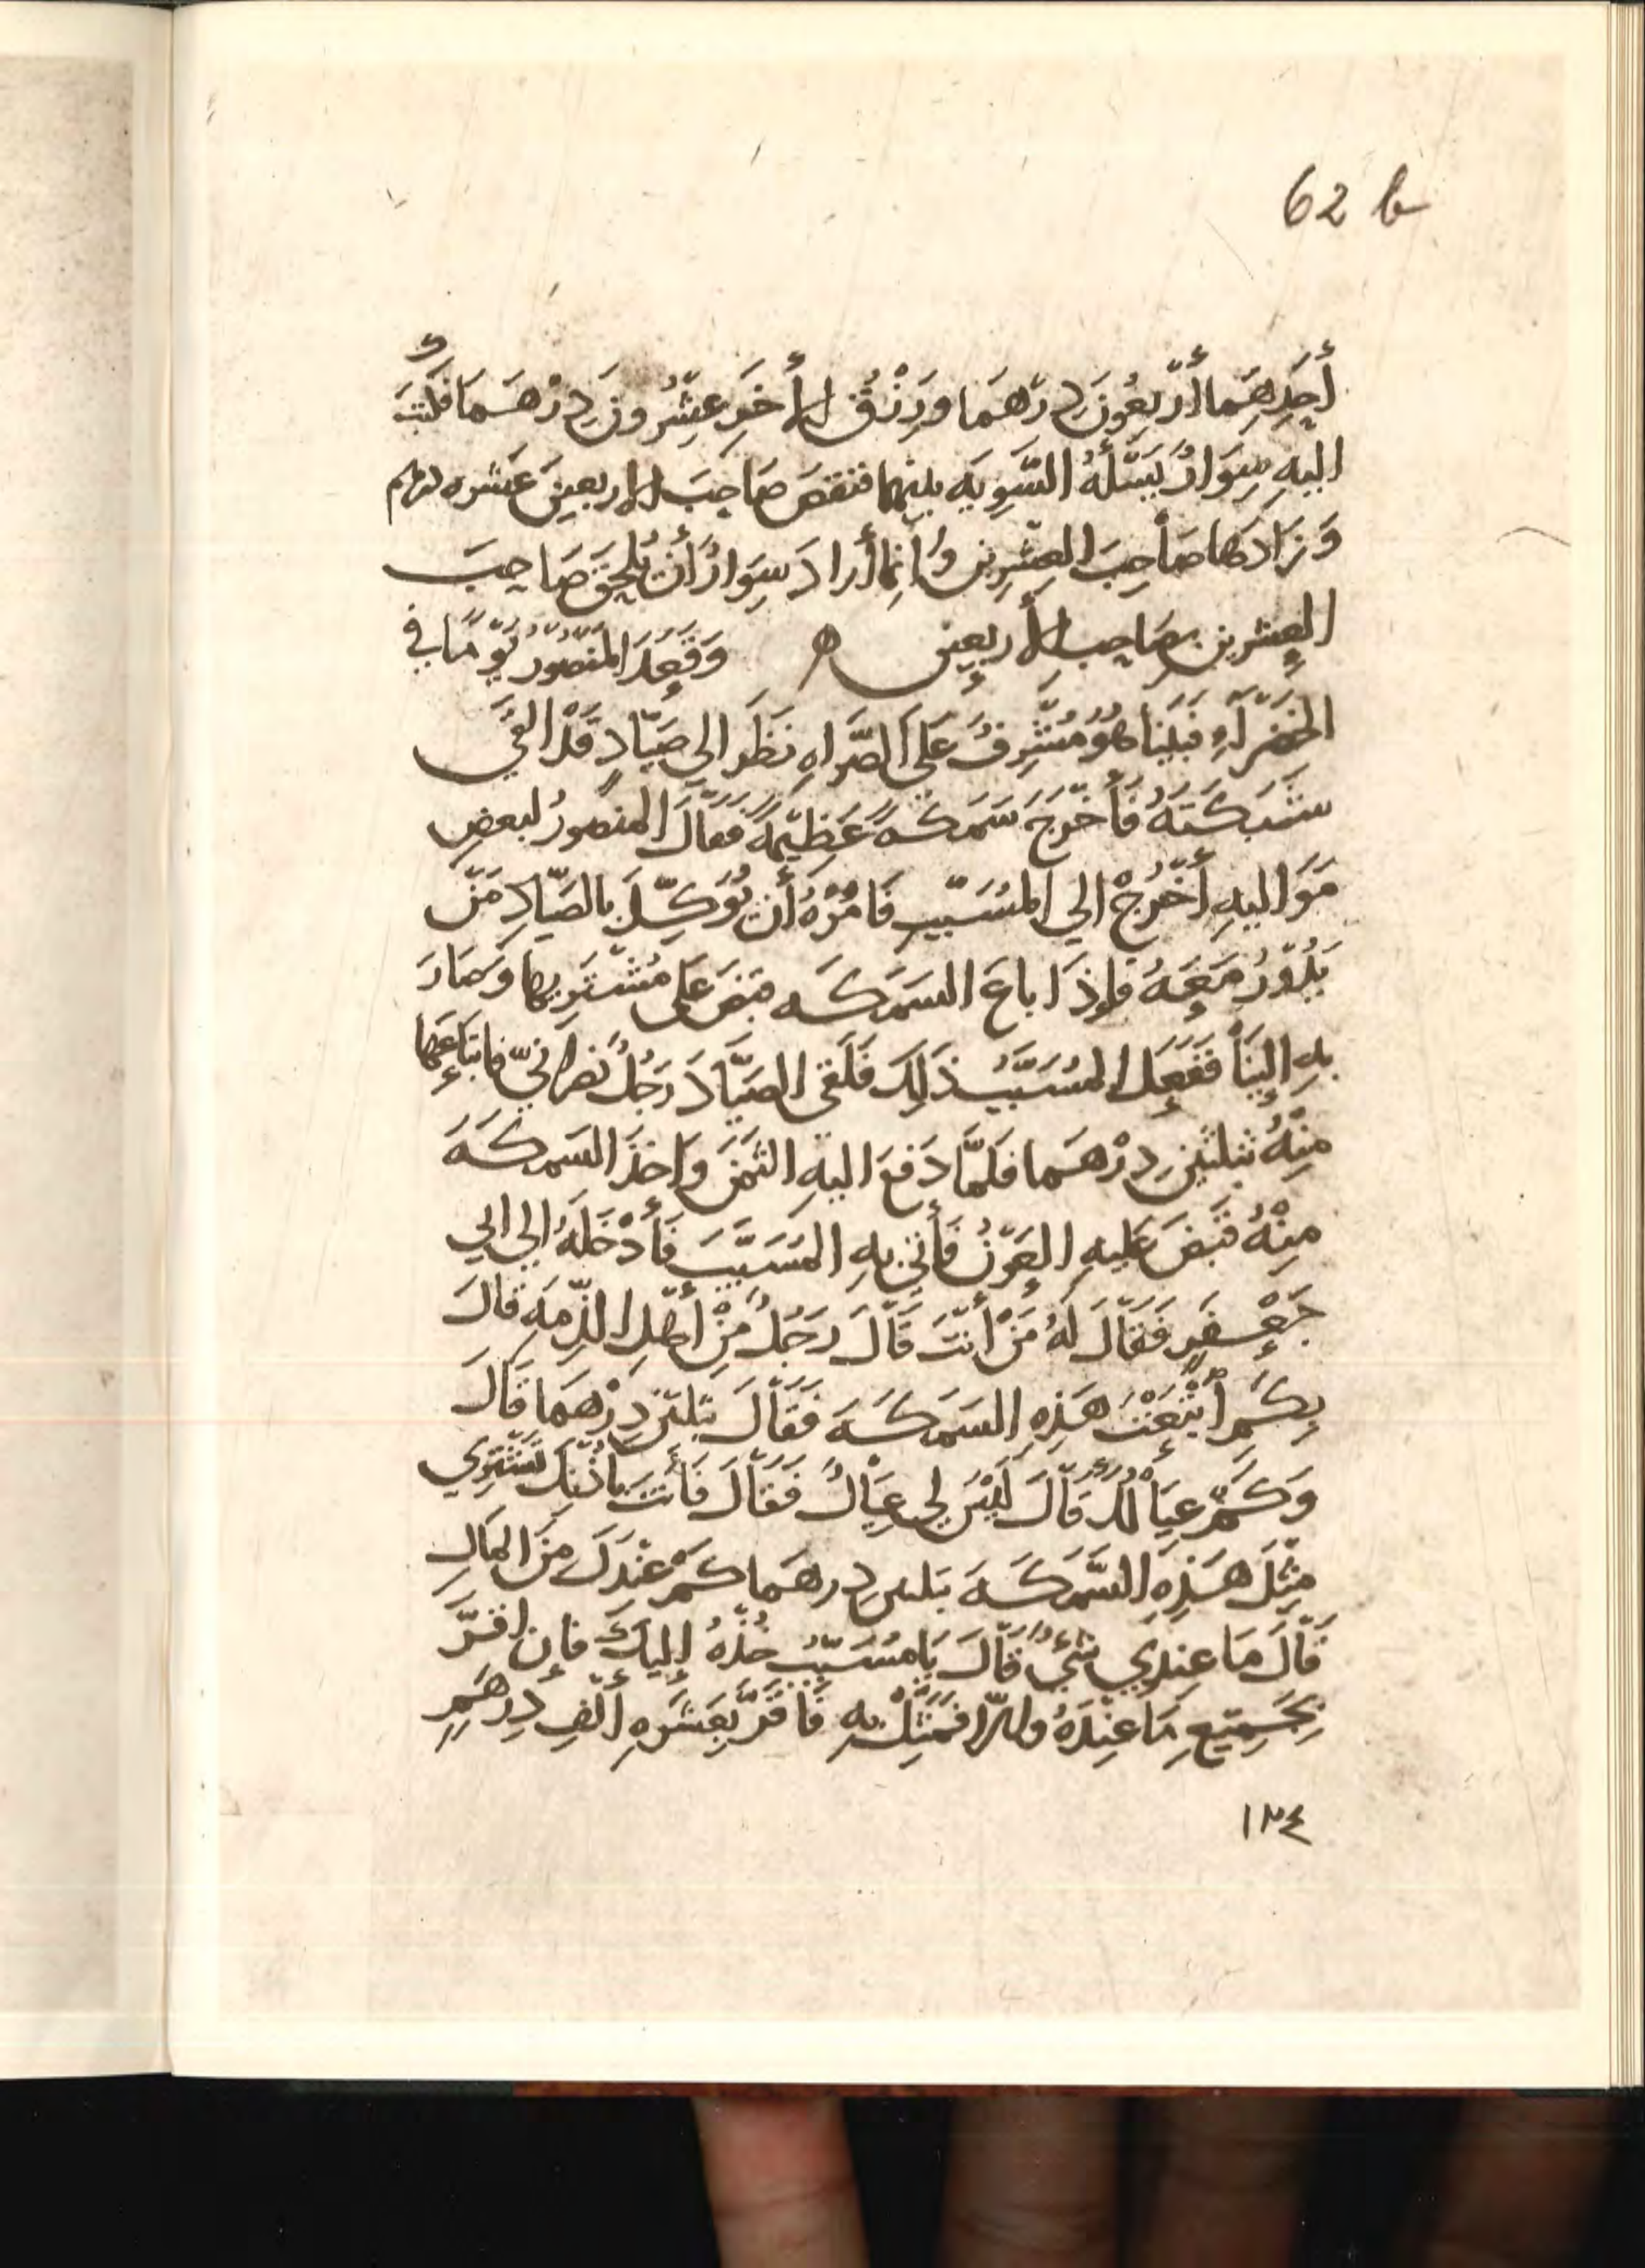 62 b
أَحَدِهِمَا أَرْبَعُونَ دِرْهَمَا وَرِزْقُ الأَخَرِ عِشْرُونَ دِرْهَمَا فَكَتَبَ
اليهِ سِوَارٌ يَسْئَلُهُ التَّسْوِيَه بينهما فنقصَ صَاحِبَ الاربعينَ عَشره دراهم
وَزَادَهَا صَاحِبَ العِشْرِين وَإنما أَرادَ سِوَارٌ أَنْ يُلْحِقَ صَاحِبَ
العِشرين بِصَاحِبِ الأَربعين ه وَقَعَدَ المَنْصُورُ يَوْمًا في
الخَضْرَآءِ فَبَيْنَا هُوَ مُشْرِفٌ عَلَى الصَّرَاهِ نَظَرَ الي صَيَّادٍ قَدْ القَي
شَبَكَتَهُ فَأَخْرَجَ سَمَكَهً عَظِيمَهً فَقَالَ المنصورُ لبعضِ
مَوَاليهِ أُخْرُجْ الي المُسَيَّبِ فَامُرْهُ أَنْ يُوَكِّلَ بالصَيّادِ مَنْ
يَدُورُ مَعَهُ فإِذَا باعَ السَمَكَه قبَضَ عَلى مُشْتَرِيها وَصَارَ
بِهِ إِلَيْنَا فَفَعَلَ المُسَيَّبُ ذَلِكَ فَلَقى الصَيَّادَ رَجُلٌ نَصْرَانيّ فابْتَاعَها
مِنْهُ بثلثينَ دِرْهَما فلمَّا دَفعَ اليهِ الثَمَنَ وَاخَذَ السَمَكَهَ
مِنْهُ قَبَضَ عَليهِ العَوْنُ فَأَتى بِهِ المُسَيَّبَ فَأَدْخَلَهُ الي ابي
جَعْفَرٍ فَقَالَ لَهُ مَنْ أَنْتَ قَالَ رَجُلٌ مِنْ أَهْلِ الذِّمَهِ قَالَ
بِكَمِ أبْتَعْتَ هَذِهِ السَمَكَهَ فَقَالَ بثلثين دِرْهَما قَالَ
وَكَمْ عِيَالُكَ قَالَ لَيْسَ لِي عِيَالٌ فَقَالَ فَأَنْتَ تشتَرِي
مِثلَ هَذِهِ السَّمَكَهَ بثلثين دِرهَما كَمْ عِنْدَكَ مِنَ المَالِ
قَالَ مَا عِنْدِي شَيْءٌ قَالَ يَا مُسَيَّبُ خُذْهُ إليكَ فإن اقَرَّ
بِجَمِيعِ مَا عِنْدَهُ وإلا فَمَثِّلْ بِهِ فَاقَرَّ بِعَشَرَهِ أَلْفِ دِرهَمٍ
١٢٤